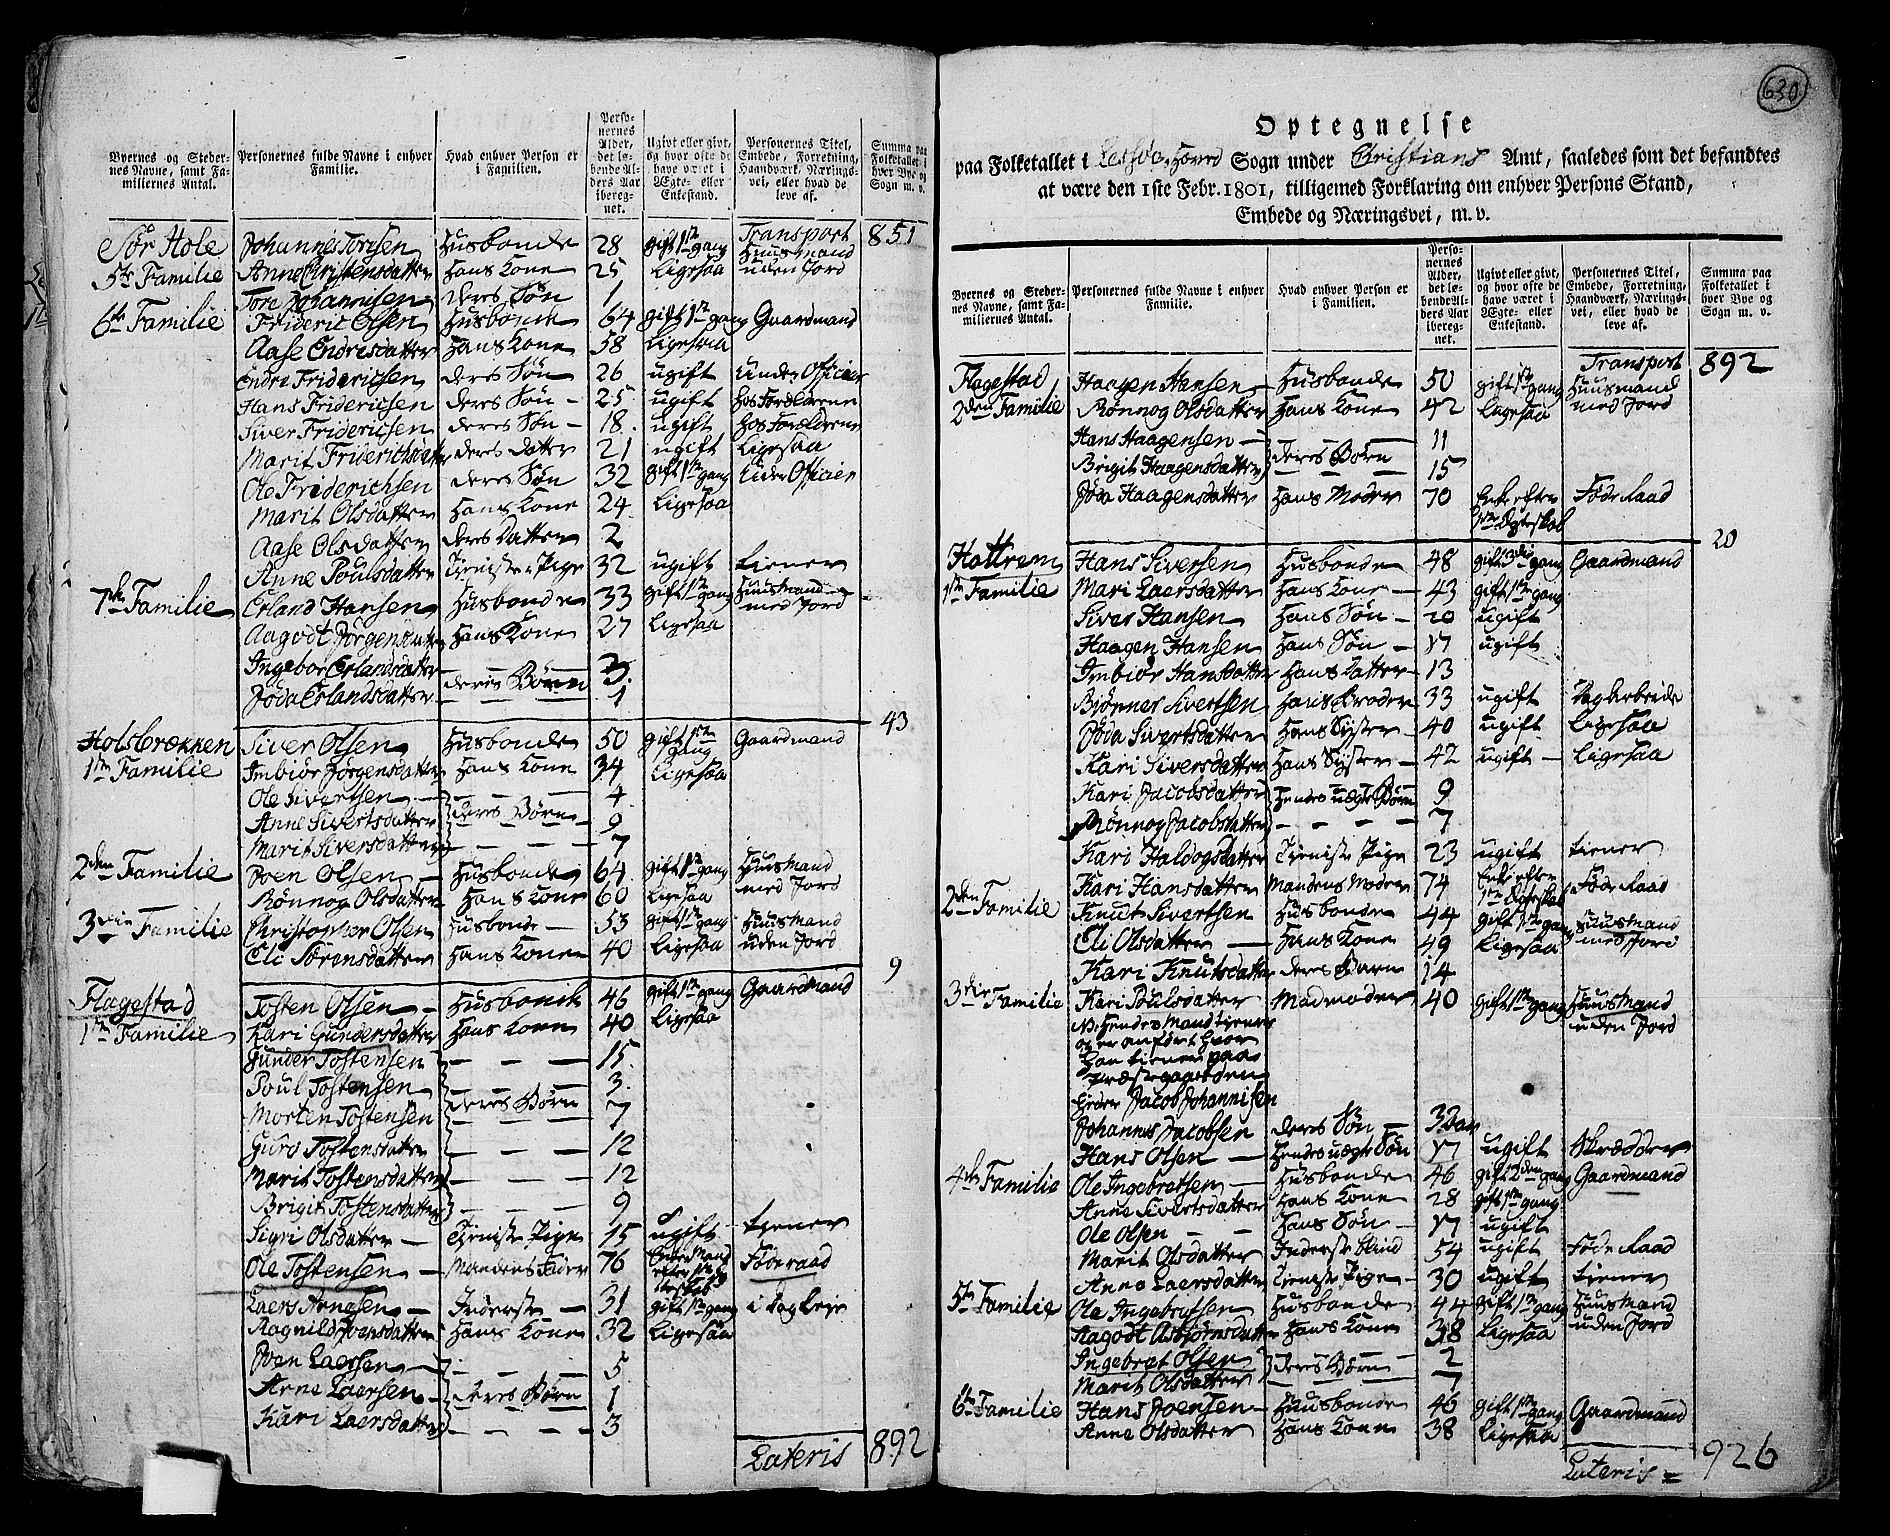 630
Byernes og Stedernes Navne, samt Familiernes Antal.
Personernes fulde Navne i enhver Familie.
Hvad enhver Person er i Familien.
Personernes Alder, det løbende Alders Aar iberegnet.
Ugivt eller givt, og hvor ofte de have været i Ægte- eller Enkestand.
Personernes Titel, Embede, Forretning, Haandværk, Næringsvei, eller hvad de leve af.
Summa paa Folketallet i hver Bye og Sogn m. v.
Transport 851
Sør Hole Johannes Toresen Husbonde 28 gift 1ste gang Huusmand
5te Familie Anne Christensdatter Hans Kone 25 Ligesaa uden Jord
Tore Johannisen deres Søn 1
6te Familie Frideric Olsen Husbonde 64 gift 1ste gang Gaardmand
Aase Endresdatter Hans Kone 58 Ligesaa
Endre Fridericsen deres Søn 26 ugift Under Officier
Hans Fridericsen deres Søn 25 ugift hos Forældrene
Siver Fridericsen deres Søn 18 ugift hos Forældrene
Marit Friderichsdatter deres Datter 21 ugift Ligesaa
Ole Friderichsen deres Søn 32 gift 1ste gang Under Officier
Marit Olsdatter Hans Kone 24 Ligesaa
Aase Olsdatter deres Datter 2
Anne Poulsdatter Tieniste Pige 32 ugift tiener
7de Familie Erland Hansen Husbonde 33 gift 1ste gang Huusmand med Jord
Aagodt Jørgensdatter Hans Kone 27 Ligesaa
Ingebor Erlandsdatter 3
Jøda Erlandsdatter deres Børn 1
43
Holsbrækken Siver Olsen Husbonde 50 gift 1ste gang Gaardmand
1ste Familie Imbiør Jørgensdatter Hans Kone 34 Ligesaa
Ole Sivertsen 4
Anne Sivertsdatter deres Børn 9
Marit Siversdatter 7
2den Familie Joen Olsen Husbonde 64 gift 1ste gang Huusmand
Rønnog Olsdatter Hans Kone 60 Ligesaa med Jord
3die Familie Christopher Olsen Husbonde 53 gift 1ste gang Huusmand
Eli Sørensdatter Hans Kone 40 Ligesaa uden Jord
9
Flagestad Tosten Olsen Husbonde 46 gift 1ste gang Gaardmand
1ste Familie Kari Gundersdatter Hans Kone 40 Ligesaa
Gunder Tostensen 15
Poul Tostensen 3
Morten Tostensen deres Børn 7
Guro Tostensdatter 12
Marit Tostensdatter 12
Brigit Tostensdatter 9
Sigri Olsdatter Tieniste Pige 15 ugift tiener
Ole Tostensen Mandens Fader 76 Enke Mand efter 1ste Føderaad
Laers Arnesen Inderste 31 gift 1ste gang i Dagleje
Ragnild Joensdatter Hans Kone 32 Ligesaa
Joen Laersen 5
Arne Laersen deres Børn 1
Kari Laersdatter 3
Lateris 892
Optegnelse
paa Folketallet i Lessøe Hoved Sogn under Christians Amt, saaledes som det befandtes
at være den 1ste Febr. 1801, tilligemed Forklaring om enhver Persons Stand,
Embede og Næringsvei, m. v.
Byernes og Stedernes Navne, samt Familiernes Antal.
Personernes fulde Navne i enhver Familie.
Hvad enhver Person er i Familien.
Personernes Alder, det løbende Alders Aar iberegnet.
Ugivt eller givt, og hvor ofte de have været i Ægte- eller Enkestand.
Personernes Titel, Embede, Forretning, Haandværk, Næringsvei, eller hvad de leve af.
Summa paa Folketallet i hver Bye og Sogn m. v.
Transport 892
Flagestad Haagen Hansen Husbonde 50 gift 1ste gang Huusmand
2den Familie Rønnog Olsdatter Hans Kone 42 Ligesaa med Jord
Hans Haagensen 11
Brigit Haagensdatter deres Børn 15
Jøda Haagensdatter Hans Moder 70 Enke efter 1ste Ægteskab Føde Raad
20
Hattrem Hans Siversen Husbonde 48 gift 3die gang Gaardmand
1ste Familie Mari Laersdatter Hans Kone 43 gift 1ste gang
Siver Hansen Hans Søn 20 ugift
Haagen Hansen Hans Søn 17 ugift
Imbiør Hansdatter Hans Datter 13
Biønner Sivertsen Hans Broder 33 ugift Dag Arbeide
Jøda Sivertsdatter Hans Syster 40 ugift Ligesaa
Kari Siversdatter Hans Syster 42 ugift Ligesaa
Kari Jacobsdatter Hendes uægte Børn 9
Rønnog Jacobsdatter 7
Kari Haldogsdatter Tieniste Pige 23 ugift tiener
Kari Hansdatter Mandens Moder 74 Enke efter 1ste Ægteskab Føde Raad
2den Familie Knut Sivertsen Husbonde 44 gift 1ste gang Huusmand
Eli Olsdatter Hans Kone 49 Ligesaa med Jord
Kari Knutsdatter deres Barn 14
3die Familie Kari Poulsdatter Madmoder 40 gift 1ste gang Huusmand
N. Hendes Mand tiener uden Jord
og er anført hvor
han tiener paa
Præstegaarden
heder Jacob Johannisen
Johannes Jacobsen deres Søn 3 Aar
Hans Olsen Hendes uægte Søn 17 ugift Skrædder
4de Familie Ole Ingebretsen Husbonde 46 gift 2den gang Gaardmand
Anne Sivertsdatter Hans Kone 28 gift 1ste gang
Ole Olsen Hans Søn 17 ugift
Marit Olsdatter Inderste blind 54 ugift Føde Raad
Anne Laersdatter Tieniste Pige 30 ugift tiener
5te Familie Ole Ingebrigtsen Husbonde 44 gift 1ste gang Huusmand
Aagodt Asbjørnsdatter Hans Kone 38 Ligesaa uden Jord
Ingebret Olsen deres Børn 2
Marit Olsdatter 7
6te Familie Hans Joensen Huusbonde 46 gift 1ste gang Gaardmand
Anne Olsdatter Hans Kone 38 Ligesaa
Lateris 926